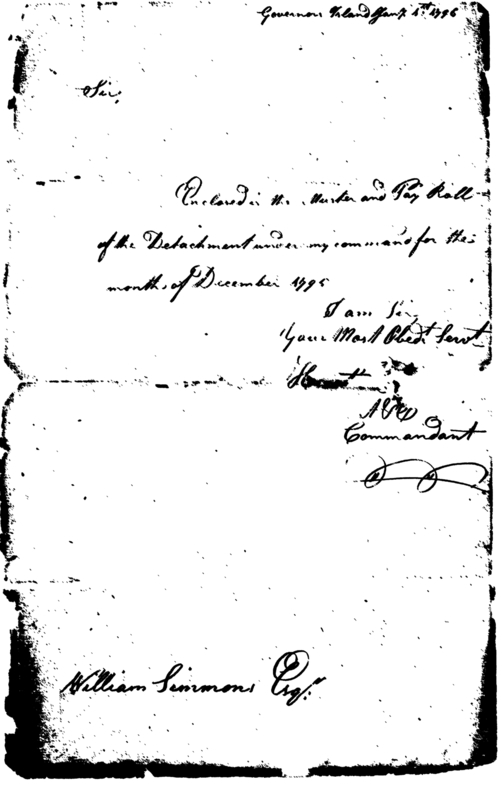 Governors Island Jany. 1st 1796
Sir,
Enclosed is the Muster and Pay Roll
of the Detachment under my command for the
month of December 1795
I am Sir,
Your Most Obedt Servt
Commandant
William Simmons Esqr.